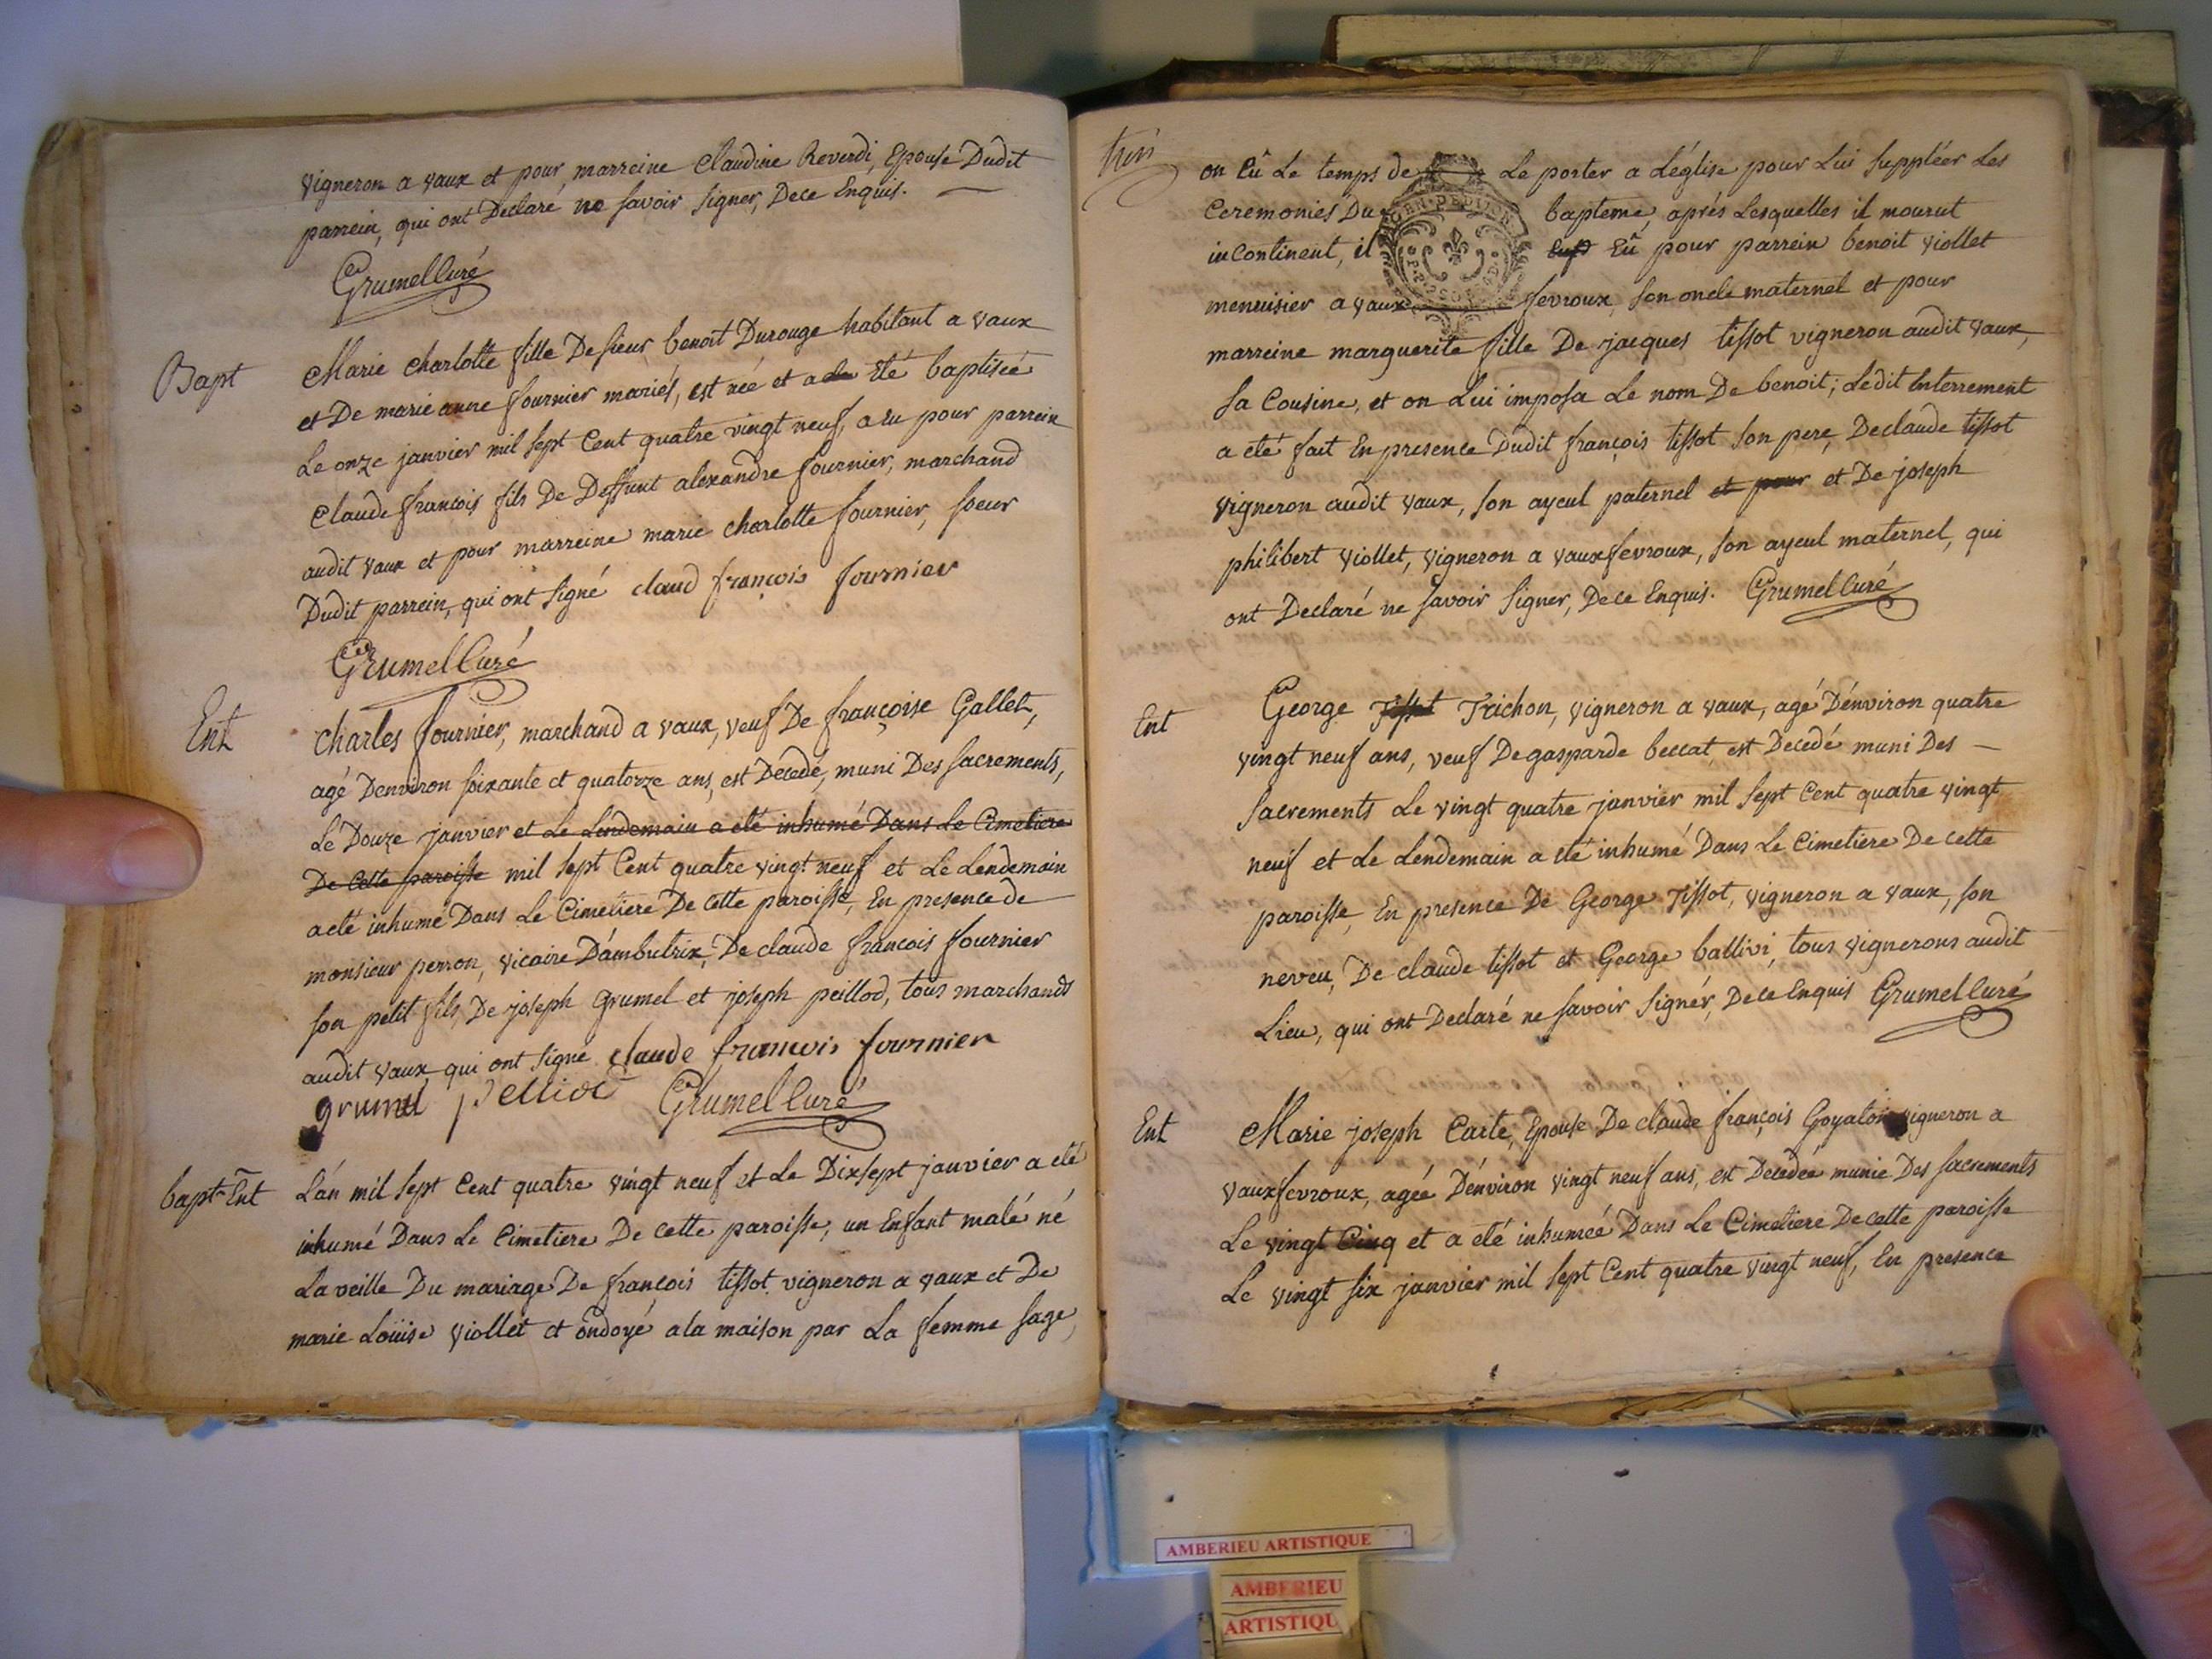 vigneron a vaux et pour marreine Claudine Reverdi, Epouse Dudit
parrein, qui ont Declaré ne savoir signer, Dece Enquis.
Grumel Curé
Bapt
Marie Charlotte fille De sieur benoit Durouge habitant a vaux
et De marie anne fournier mariés, est née et a eté baptisée
Le onze janvier mil sept Cent quatre vingt neuf, a eu pour parrein
Claude francois fils De Deffunt alexandre fournier, marchand
audit vaux et pour marreine marie charlotte fournier, soeur
Dudit parrein, qui ont signé claud françois fournier
Grumel Curé
Ent
Charles fournier, marchand a vaux, veuf De françoise Gallet,
agé Denviron soixante et quatorze ans, est Decedé, muni Des sacrements,
Le Douze janvier et Le Lendemain a eté inhumé Dans Le Cimetiere
De Cette paroisse mil sept Cent quatre vingt neuf et Le Lendemain
a eté inhumé Dans Le Cimetiere De Cette paroisse, En presence de
monsieur perron, vicaire D'ambutrix, De claude francois fournier
son petit fils, De joseph Grumel et joseph peillod, tous marchands
audit vaux qui ont signé claude françois fournier
grumel Grumel Curé
bapt Ent
L'án mil sept Cent quatre vingt neuf et Le Dixsept janvier a eté
inhumé Dans Le Cimetiere De Cette paroisse, un Enfant male né
La veille Du mariage De françois tissot vigneron a vaux et De
marie Loüise viollet et ondoyé a la maison par La femme sage,
on Eû Le temps de Le porter a L'église pour Lui suppléer Les
Ceremonies Du bapteme, aprés Lesquelles il mourut
inContinent, il Eû pour parrein benoit viollet
menuisier a vaux fevroux, son oncle maternel et pour
marreine marguerite fille De jacques tissot vigneron audit vaux,
sa Cousine, et on Lui imposa Le nom De benoit; Ledit Enterrement
a eté fait En presence Dudit françois tissot son pere, De claude tissot
vigneron audit vaux, son ayeul paternel et pour et De joseph
philibert viollet, vigneron a vauxfevroux, son ayeul maternel, qui
ont Declaré ne savoir signer, De ce Enquis. Grumel Curé
Ent
George Tissot Trichon, vigneron a vaux, agé D'énviron quatre
vingt neuf ans, veuf De gasparde beccat, est Decedé muni Des
sacrements Le vingt quatre janvier mil sept Cent quatre vingt
neuf et Le Lendemain a eté inhumé Dans Le Cimetiere De Cette
paroisse, En presence De George Tissot, vigneron a vaux, son
neveu, De claude tissot et George ballivi, tous vignerons audit
Lieu, qui ont Declaré ne savoir signér, De ce Enquis Grumel Curé
Ent
Marie joseph Carte, Epouse De claude françois Goyaton vigneron a
vauxfevroux, agée D'énviron vingt neuf ans, est Decedée munie Des sacrements
Le vingt Cinq et a eté inhumée Dans Le Cimetiere De Cette paroisse
Le vingt six janvier mil sept Cent quatre vingt neuf, En presence
AMBERIEU ARTISTIQUE
AMBERIEU
ARTISTIQU